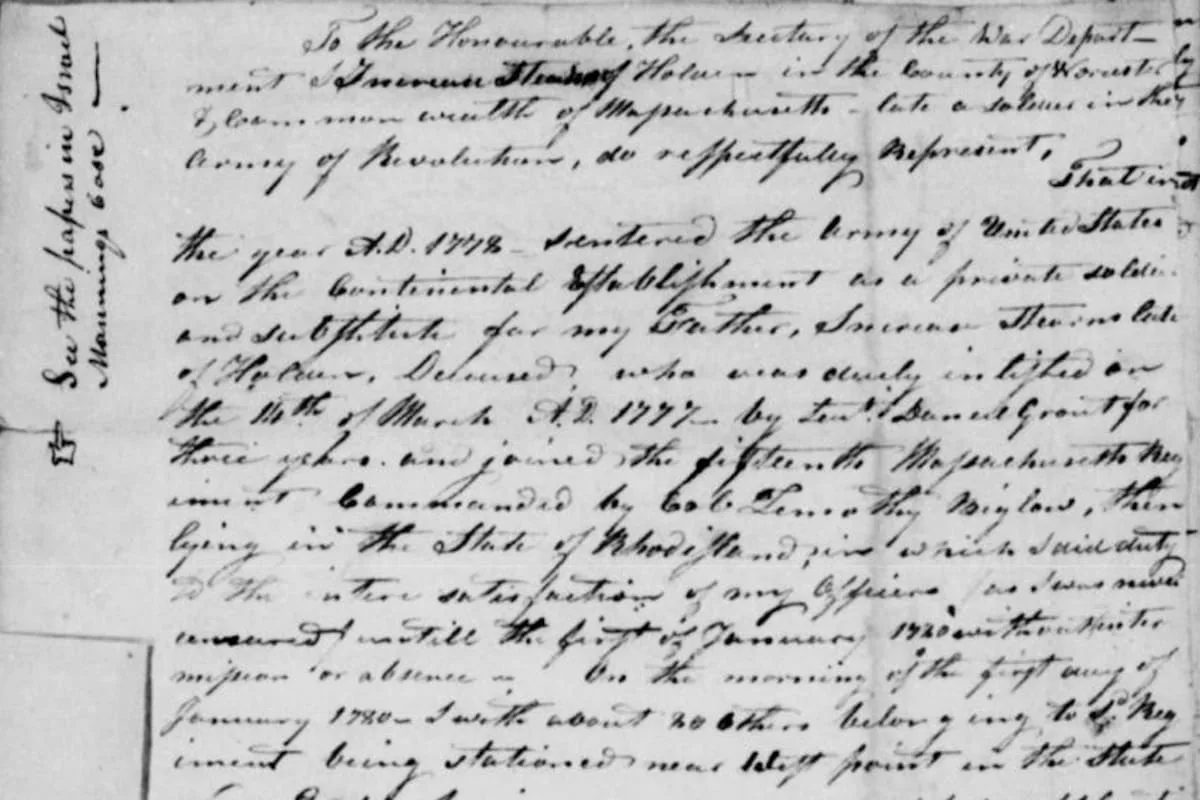 See the papers in Israel
Mannings Case —
To the Honourable, the Secretary of the War Depart-
ment I Increase Stearns of Holden in the County of Worcester
& Common wealth of Massachusetts - late a soldier in the
Army of Revolution, do respectfully Represent,
That in
the year A.D. 1778 - I entered the Army of United States
on the Continental Establishment as a private soldier
and substitute for my Father, Increase Stearns late
of Holden, Deceased, who was duely inlisted on
the 14th of March A.D. 1777 - by Leut. Daniel Grout for
three years. and joined the fifteenth Massachusetts Reg
iment Commanded by Col Timothy Biglow, then
lying in the State of Rhodisland, in which I did duty
to the intere satisfaction of my Officers (as I was never
censured) untill the first of January 1780 without inter
mission or absence - On the morning of the first day of
January 1780 - I with about 20 others belonging to Sd Reg
iment being stationed near West point in the State